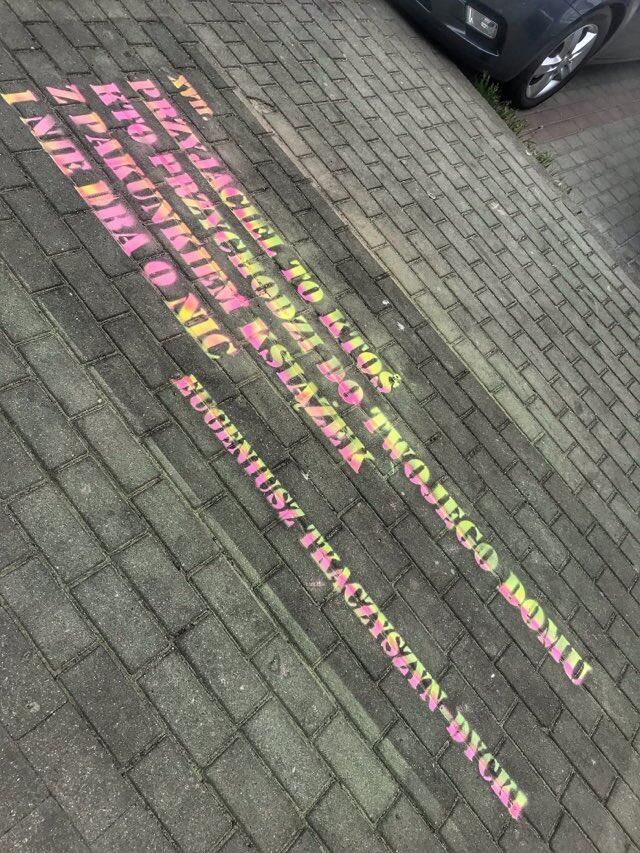 XVII.
PRZYJACIEL TO KTOŚ
KTO PRZYCHODZI DO TWOJEGO DOMU
Z PAKUNKIEM KSIĄŻEK
I NIE DBA O NIC
EUGENIUSZ TKACZYSZYN-DYCKI